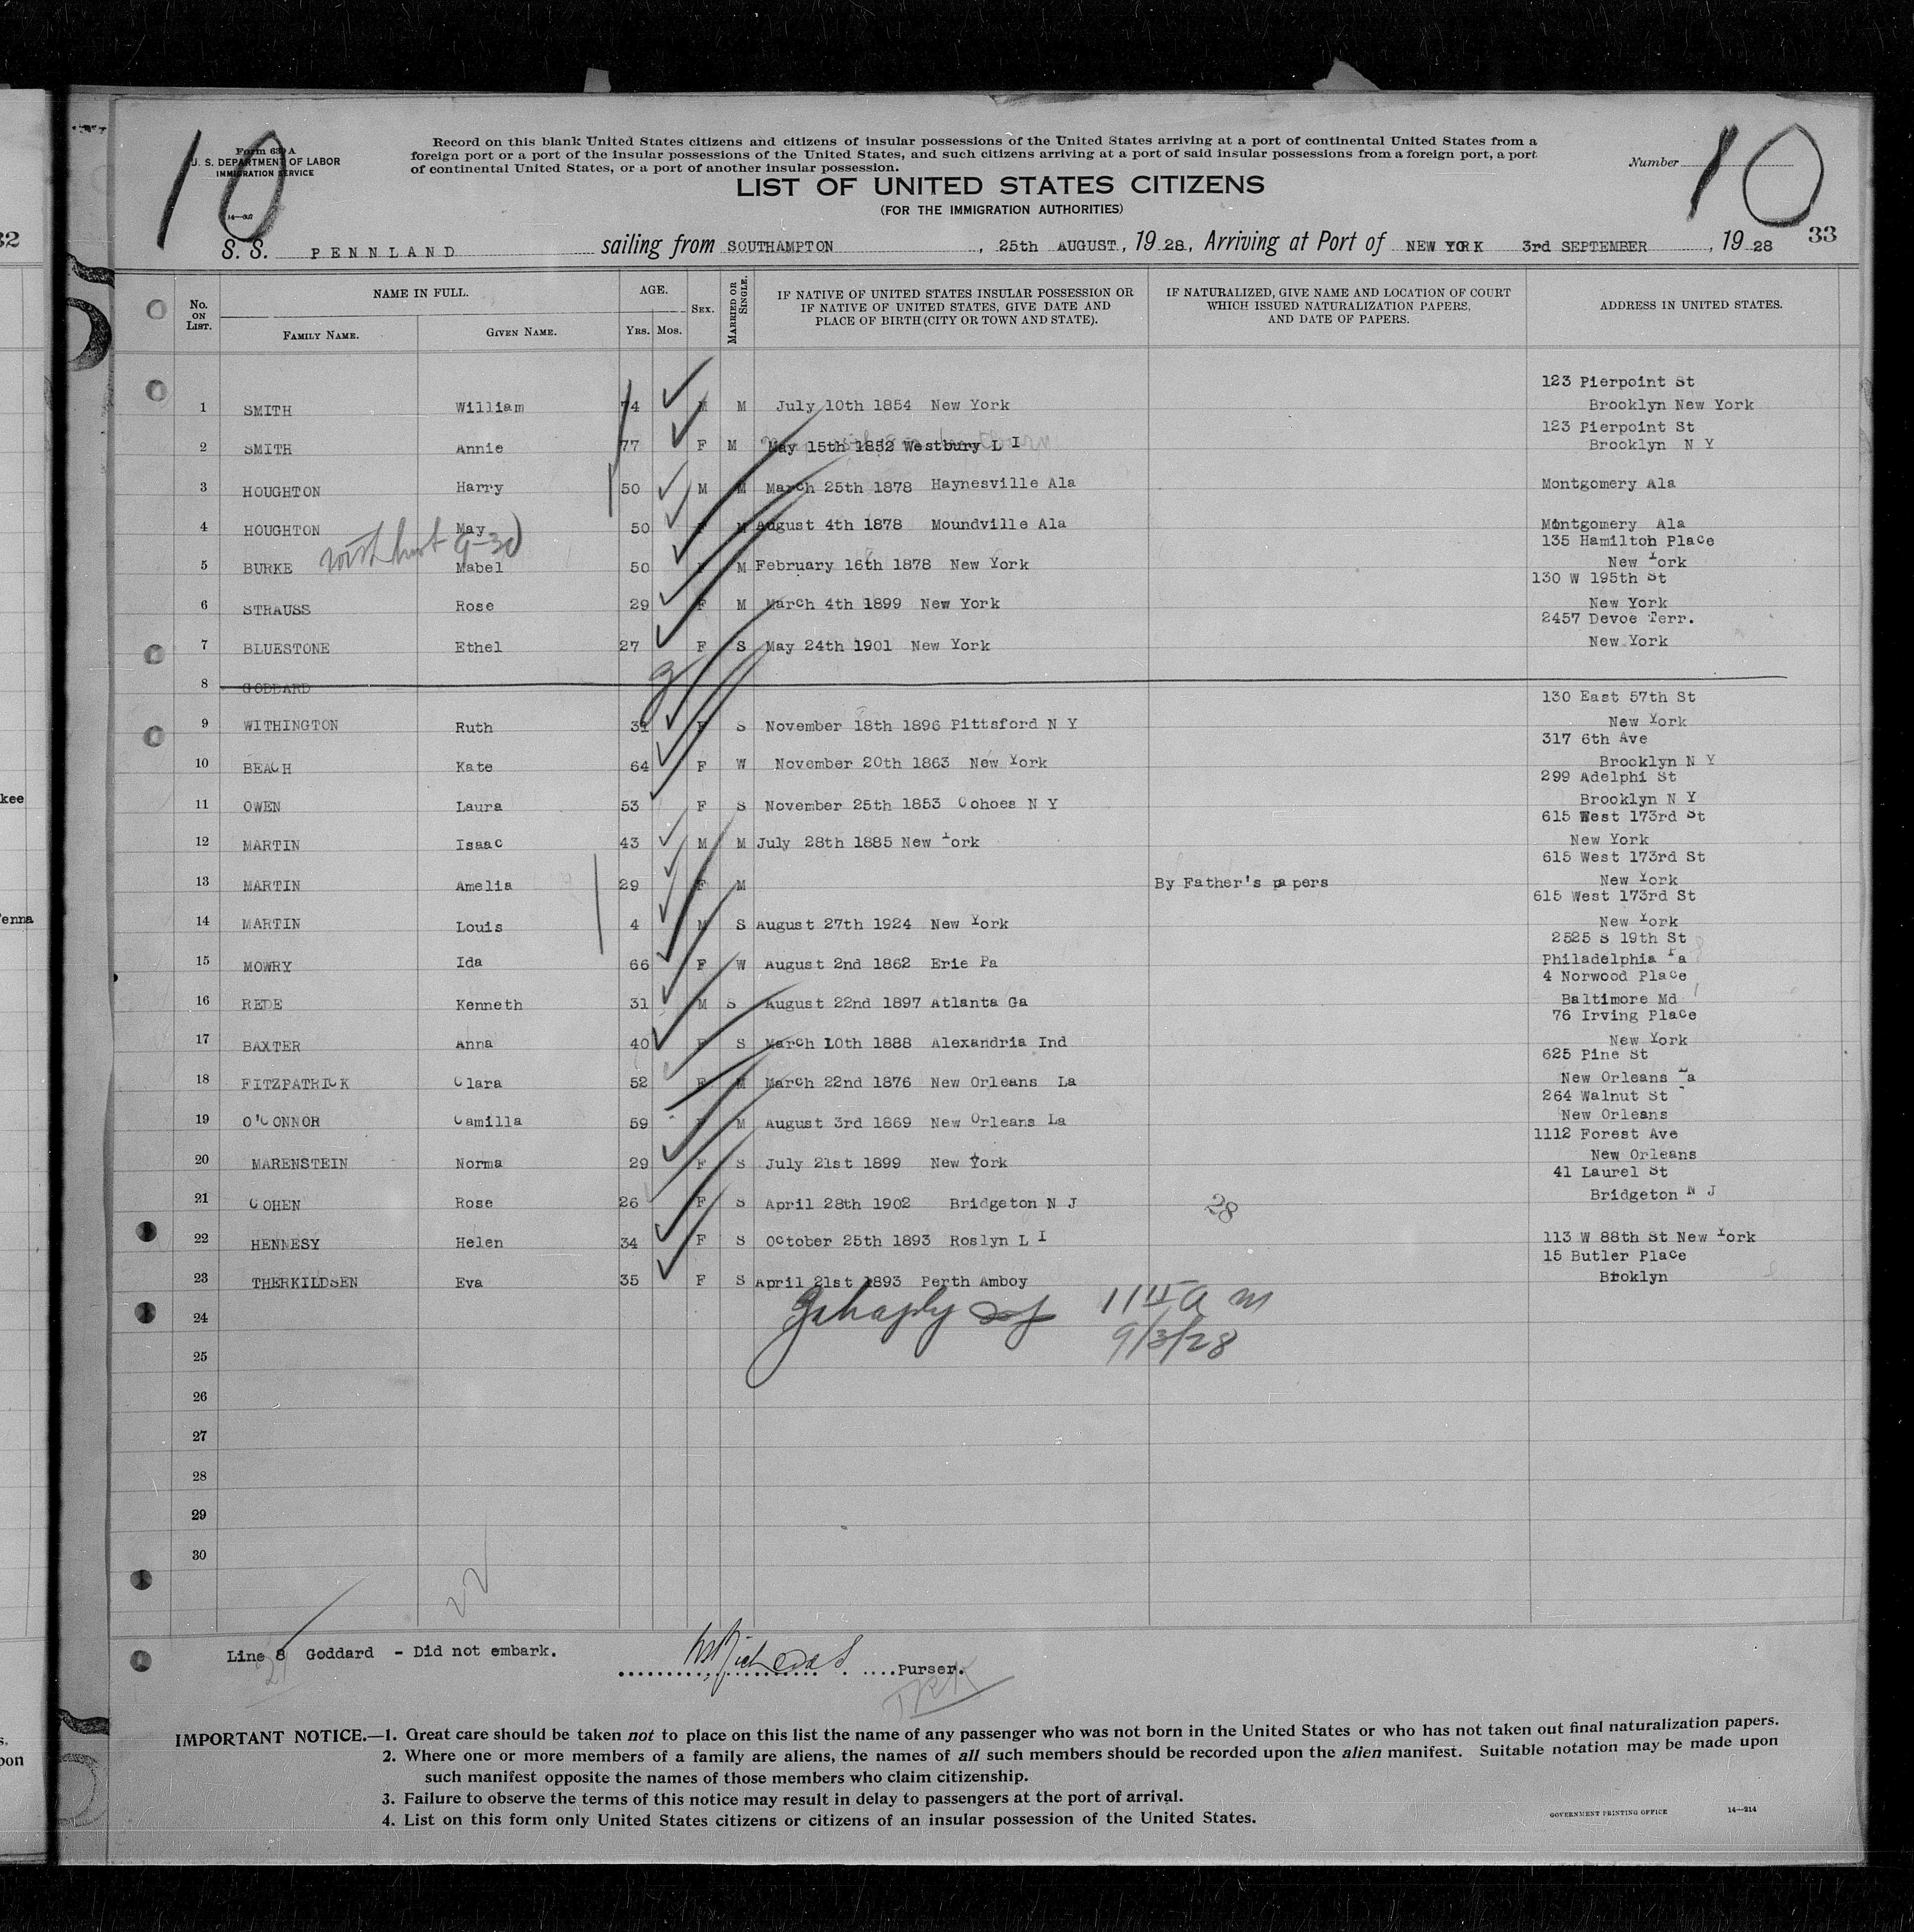 10
Form 630 A
U. S. DEPARTMENT OF LABOR
IMMIGRATION SERVICE
Record on this blank United States citizens and citizens of insular possessions of the United States arriving at a port of continental United States from a
foreign port or a port of the insular possessions of the United States, and such citizens arriving at a port of said insular possessions from a foreign port, a port
of continental United States, or a port of another insular possession.
Number 10
LIST OF UNITED STATES CITIZENS
(FOR THE IMMIGRATION AUTHORITIES)
S. S. PENNLAND sailing from SOUTHAMPTON, 25th AUGUST, 1928, Arriving at Port of NEW YORK 3rd SEPTEMBER, 1928 33
32
No. ON LIST. NAME IN FULL. AGE. SEX. MARRIED OR SINGLE. IF NATIVE OF UNITED STATES INSULAR POSSESSION OR IF NATIVE OF UNITED STATES, GIVE DATE AND PLACE OF BIRTH (CITY OR TOWN AND STATE). IF NATURALIZED, GIVE NAME AND LOCATION OF COURT WHICH ISSUED NATURALIZATION PAPERS, AND DATE OF PAPERS. ADDRESS IN UNITED STATES.
FAMILY NAME. GIVEN NAME. YRS. MOS.
123 Pierpoint St
1 SMITH William 74 M M July 10th 1854 New York Brooklyn New York
123 Pierpoint St
2 SMITH Annie 77 F M May 15th 1852 Westbury L I Brooklyn N Y
3 HOUGHTON Harry 50 M M March 25th 1878 Haynesville Ala Montgomery Ala
4 HOUGHTON May 50 F M August 4th 1878 Moundville Ala Montgomery Ala
9-30
135 Hamilton Place
5 BURKE Mabel 50 F M February 16th 1878 New York New York
130 W 195th St
6 STRAUSS Rose 29 F M March 4th 1899 New York New York
2457 Devoe Terr.
7 BLUESTONE Ethel 27 F S May 24th 1901 New York New York
8 GODDARD
130 East 57th St
9 WITHINGTON Ruth 31 F S November 18th 1896 Pittsford N Y New York
317 6th Ave
10 BEACH Kate 64 F W November 20th 1863 New York Brooklyn N Y
299 Adelphi St
11 OWEN Laura 53 F S November 25th 1853 Cohoes N Y Brooklyn N Y
615 West 173rd St
12 MARTIN Isaac 43 M M July 28th 1885 New York New York
615 West 173rd St
13 MARTIN Amelia 29 F M By Father's papers New York
615 West 173rd St
14 MARTIN Louis 4 M S August 27th 1924 New York New York
2525 S 19th St
15 MOWRY Ida 66 F W August 2nd 1862 Erie Pa Philadelphia Pa
4 Norwood Place
16 REDE Kenneth 31 M S August 22nd 1897 Atlanta Ga Baltimore Md
76 Irving Place
17 BAXTER Anna 40 F S March 10th 1888 Alexandria Ind New York
625 Pine St
18 FITZPATRICK Clara 52 F M March 22nd 1876 New Orleans La New Orleans La
264 Walnut St
19 O'CONNOR Camilla 59 F M August 3rd 1869 New Orleans La New Orleans
1112 Forest Ave
20 MARENSTEIN Norma 29 F S July 21st 1899 New York New Orleans
41 Laurel St
21 COHEN Rose 26 F S April 28th 1902 Bridgeton N J 28 Bridgeton N J
22 HENNESY Helen 34 F S October 25th 1893 Roslyn L I 113 W 88th St New York
15 Butler Place
23 THERKILDSEN Eva 35 F S April 21st 1893 Perth Amboy Broklyn
24
11 a m
25
9/3/28
26
27
28
29
30
22
Line 8 Goddard - Did not embark.
Purser.
IMPORTANT NOTICE.—1. Great care should be taken not to place on this list the name of any passenger who was not born in the United States or who has not taken out final naturalization papers.
2. Where one or more members of a family are aliens, the names of all such members should be recorded upon the alien manifest. Suitable notation may be made upon
such manifest opposite the names of those members who claim citizenship.
3. Failure to observe the terms of this notice may result in delay to passengers at the port of arrival.
4. List on this form only United States citizens or citizens of an insular possession of the United States.
GOVERNMENT PRINTING OFFICE 14—214